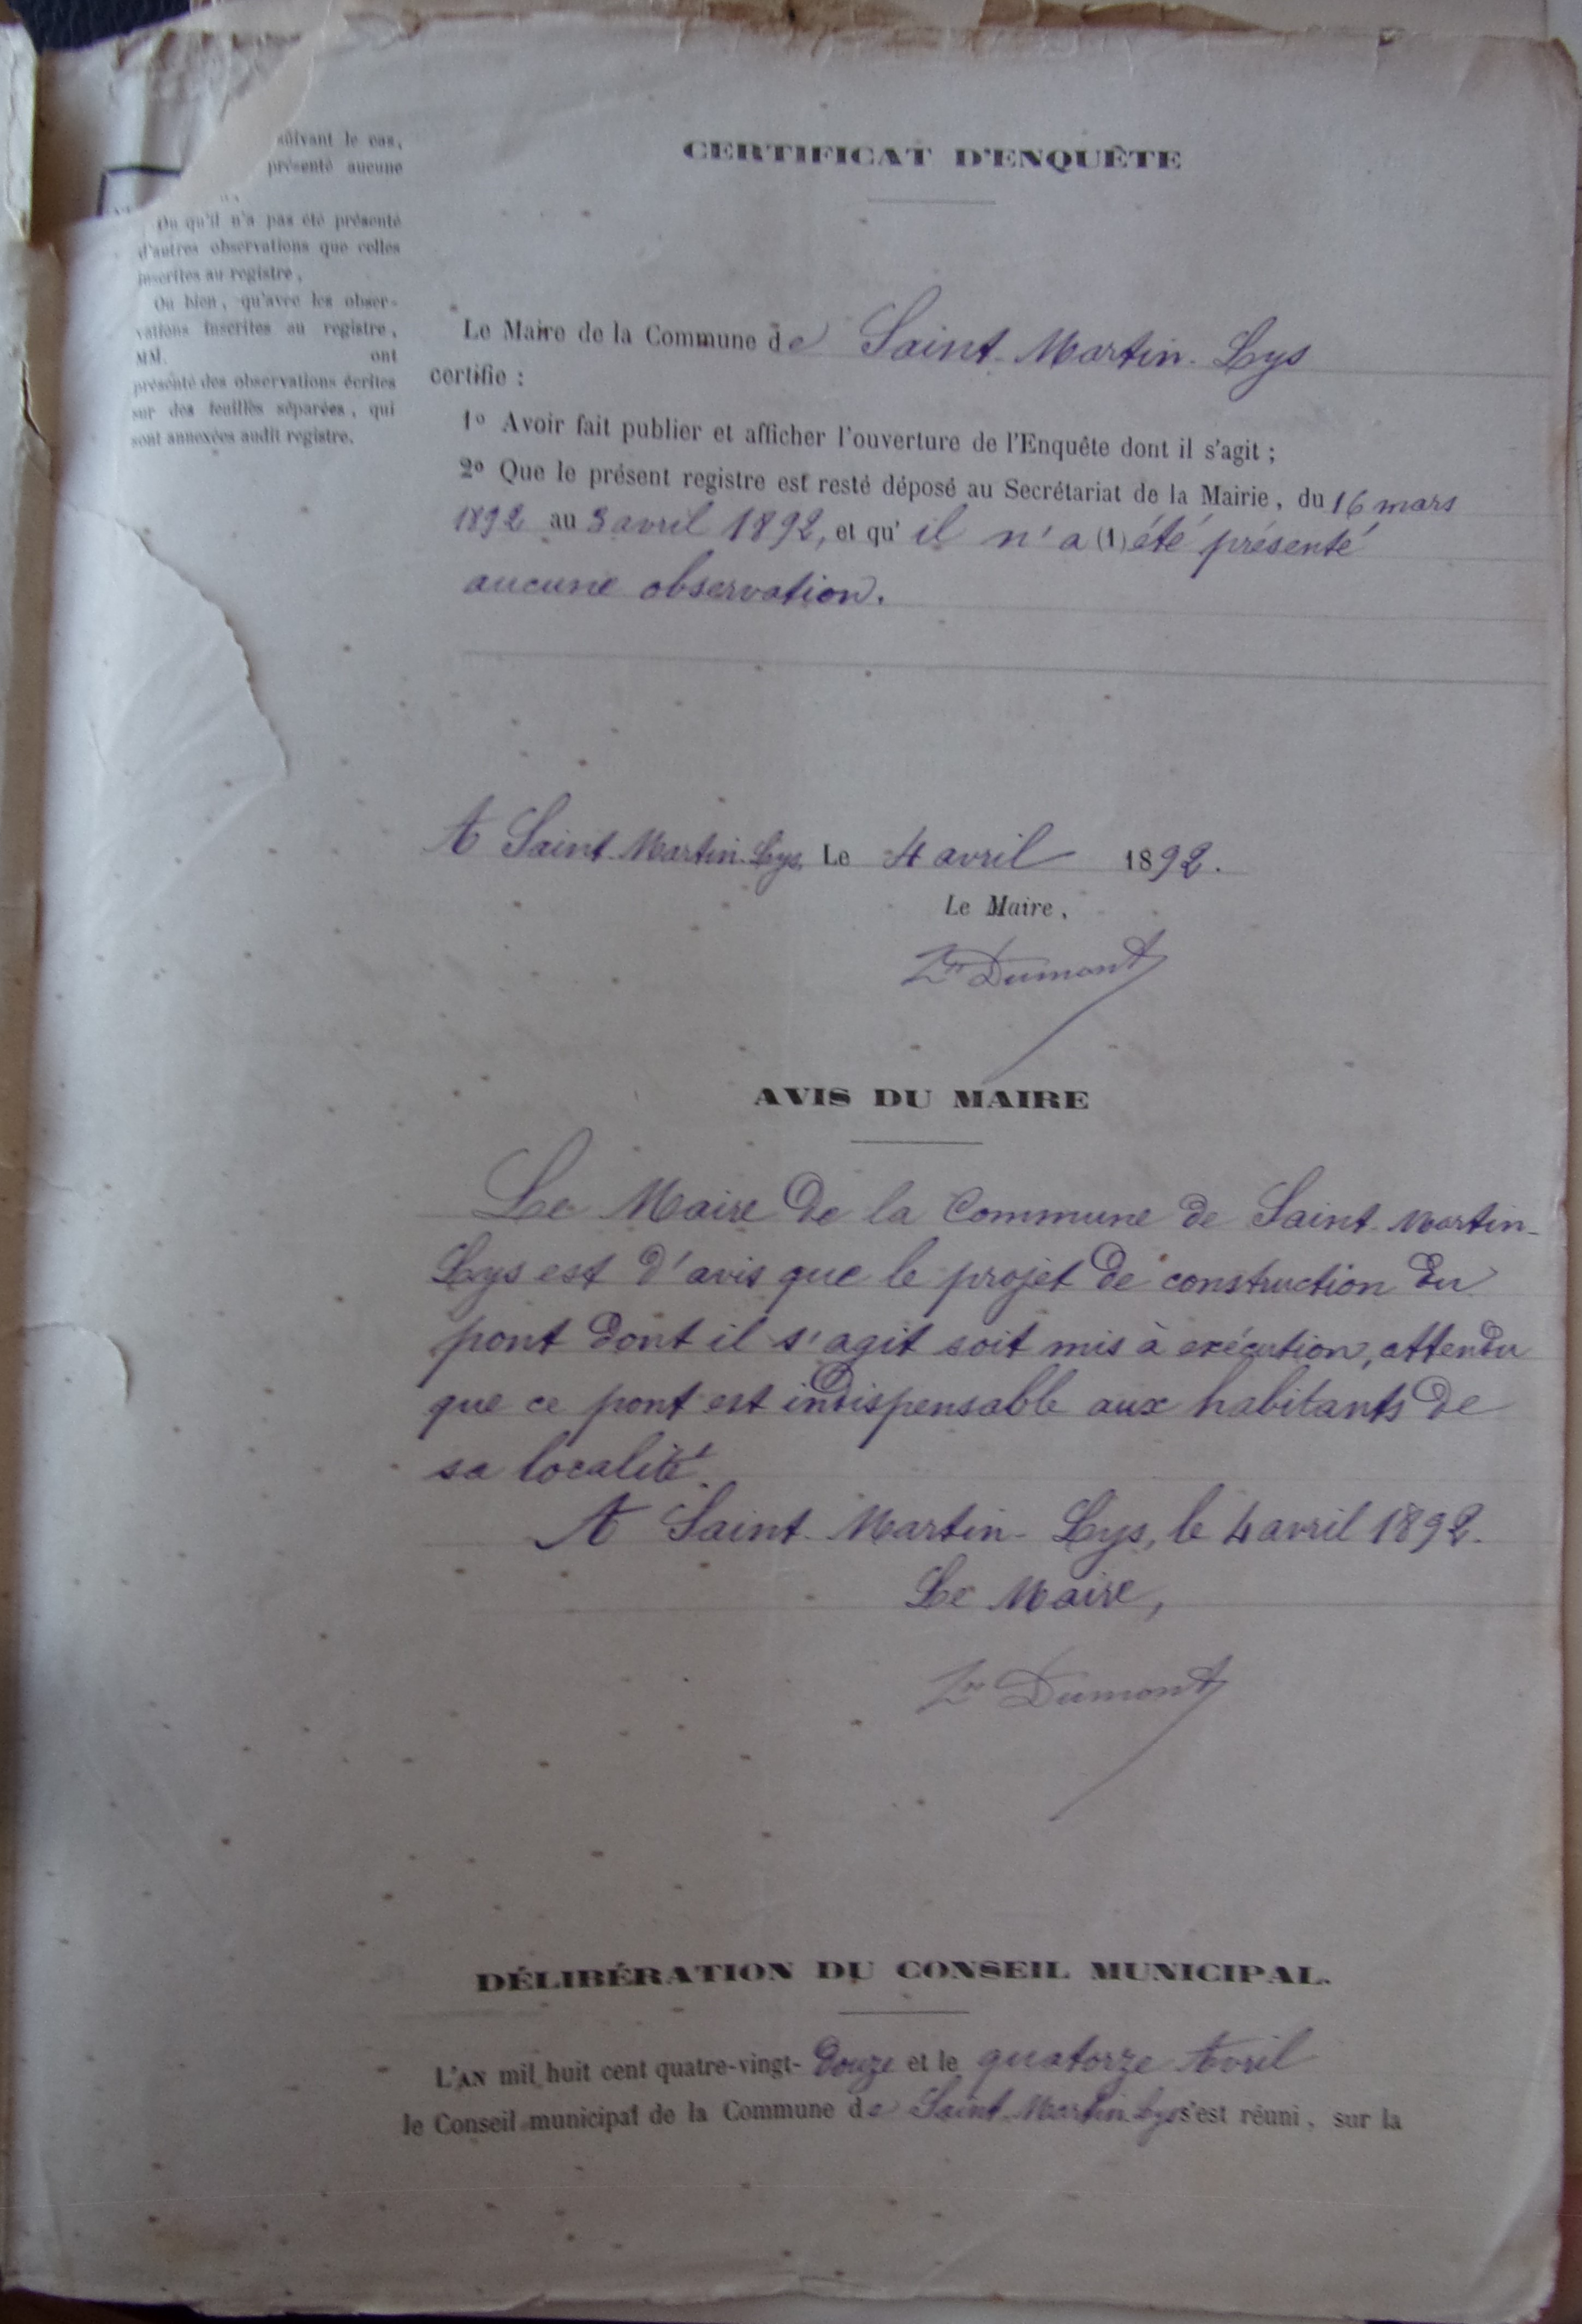 suivant le cas,
présenté aucune
Ou qu'il n'a pas été présenté
d'autres observations que celles
inscrites au registre,
Ou bien, qu'avec les obser-
vations inscrites au registre,
MM. ont
présenté des observations écrites
sur des feuilles séparées, qui
sont annexées audit registre.
CERTIFICAT D'ENQUÊTE
Le Maire de la Commune de Saint-Martin-Lys
certifie :
1º Avoir fait publier et afficher l'ouverture de l'Enquête dont il s'agit ;
2º Que le présent registre est resté déposé au Secrétariat de la Mairie, du 16 mars
1892 au 3 avril 1892, et qu'il n'a (1) été présenté
aucune observation.
A Saint-Martin-Lys, Le 4 avril 1892.
Le Maire,
Dumont
AVIS DU MAIRE
Le Maire de la Commune de Saint-Martin-
Lys est d'avis que le projet de construction du
pont dont il s'agit soit mis à exécution, attendu
que ce pont est indispensable aux habitants de
sa localité.
A Saint-Martin-Lys, le 4 avril 1892.
Le Maire,
Dumont
DÉLIBÉRATION DU CONSEIL MUNICIPAL.
L'AN mil huit cent quatre-vingt-douze et le quatorze Avril
le Conseil municipal de la Commune de Saint-Martin-Lys s'est réuni, sur la